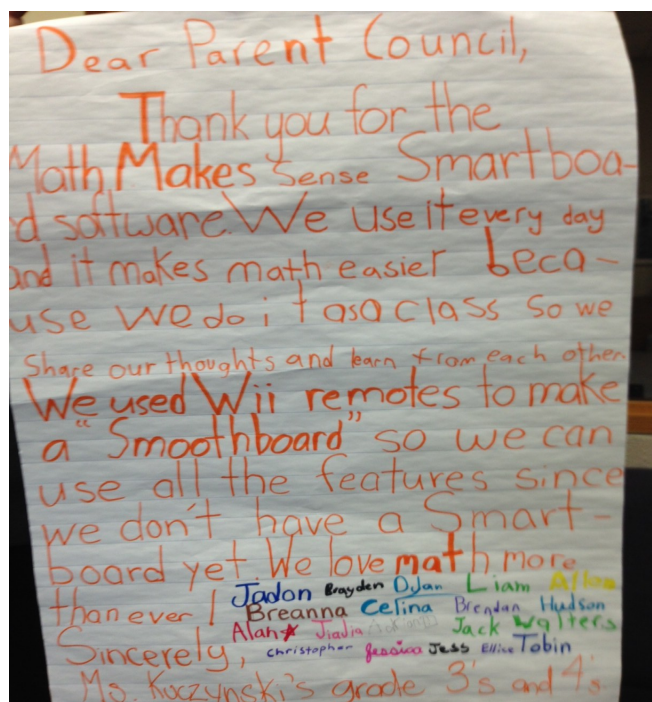 Dear Parent Council,
Thank you for the
Math Makes Sense Smartboa-
d software. We use it every day
and it makes math easier beca-
use we do it as a class so we
share our thoughts and learn from each other.
We used Wii remotes to make
a "Smoothboard" so we can
use all the features since
we don't have a Smart-
board yet. We love math more
than ever!
Jadon Brayden Dylan Liam
Breanna Celina Brendan Hudson
Alan Jiadia Jack Walters
Sincerely,
Christopher Jessica Jess Ellice Tobin
Ms. Kuczynski's grade 3's and 4's.